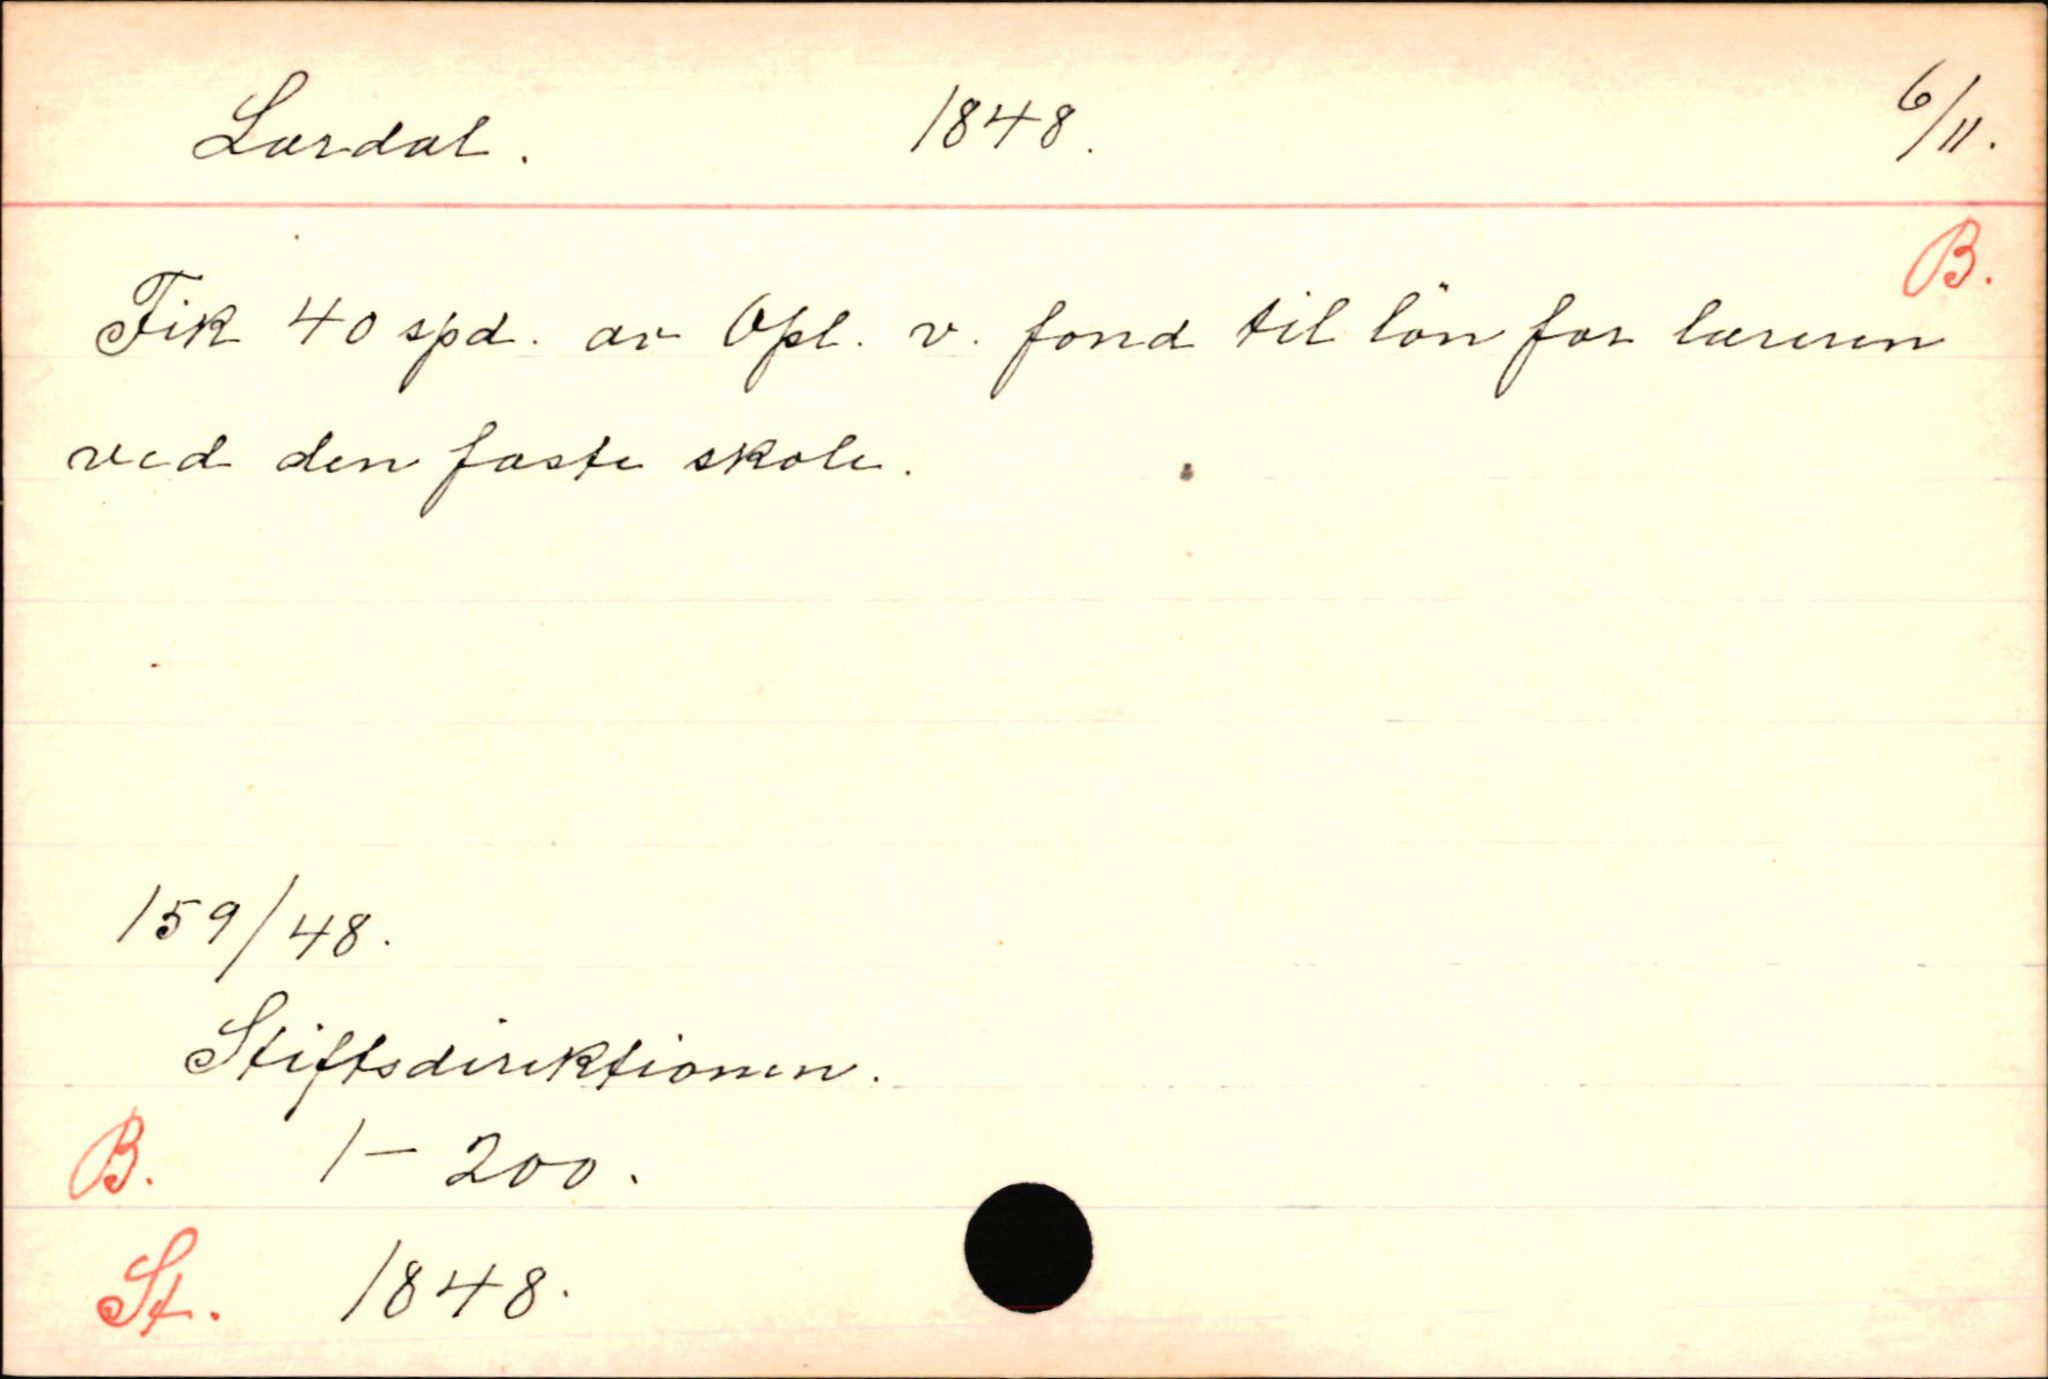 Lærdal. 1848. 6/11.
B.
Fik 40 spd. av Opl. v. fond til lön for læreren
ved den faste skole.
159/48.
Stiftsdirektionen.
B. 1-200.
St. 1848.